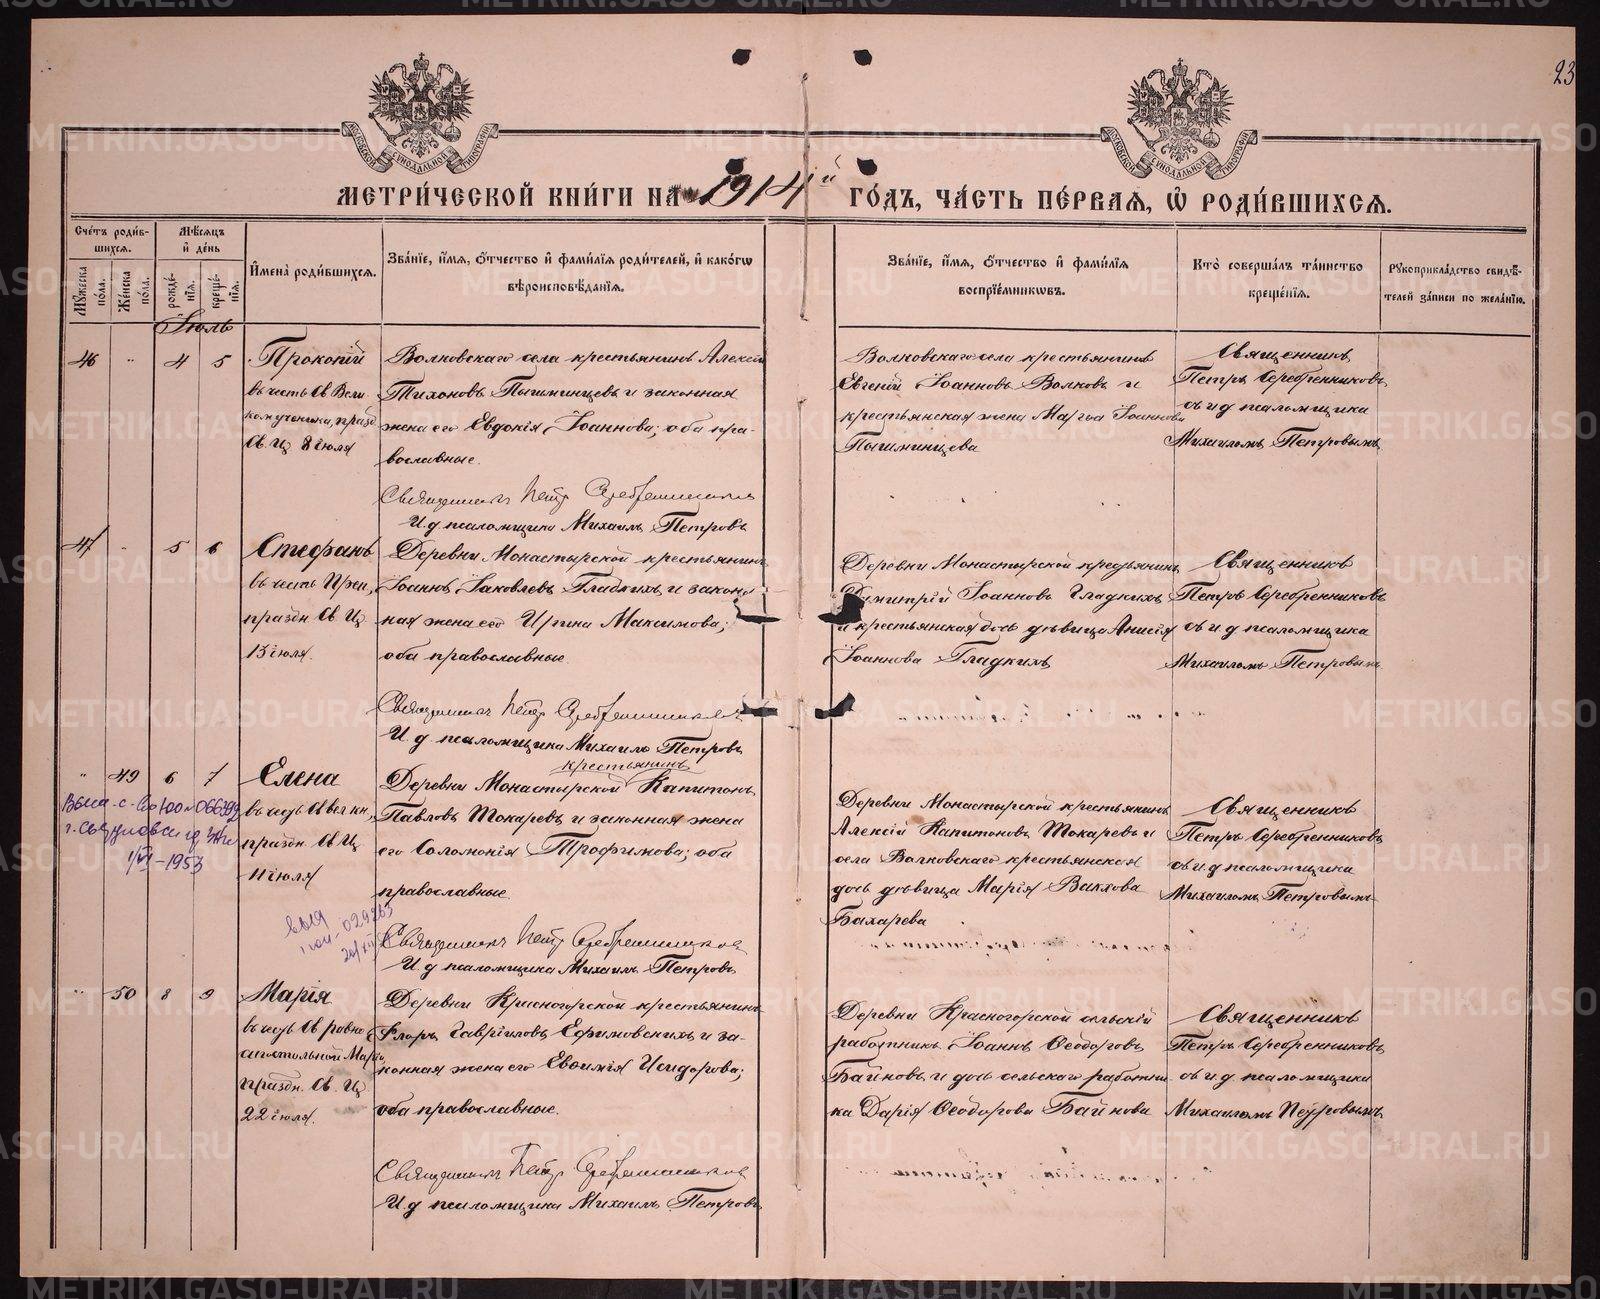 23
МОСКОВСКОЙ СУНОДАЛЬНОЙ ТИПОГРАФИИ
МОСКОВСКОЙ СУНОДАЛЬНОЙ ТИПОГРАФИИ
МЕТРИ́ЧЕСКОЙ КНИ́ГИ НА 1914й ГО́ДЪ, ЧА́СТЬ ПЕ́РВАѦ, Ѽ РОДИ́ВШИХСѦ.
Сче́тъ роди́в-
шихсѧ.
Мꙋ́жеска по́ла.
Же́нска по́ла.
Мѣ́сѧцъ
и҆ де́нь
рожде́-
нїѧ.
креще́-
нїѧ.
И҆мена̀ роди́вшихсѧ.
Зва́нїе, и҆́мѧ, ѻ҆́тчество и҆ фами́лїѧ роди́телей, и҆ како́гѡ
вѣроисповѣ́данїѧ.
Зва́нїе, и҆́мѧ, ѻ҆́тчество и҆ фами́лїѧ
воспрїе́мникѡвъ.
Кто̀ соверша́лъ та́инство
креще́нїѧ.
Рꙋкоприкла́дство свидѣ́-
телей за́писи по жела́нїю.
Іюль
46 " 4 5
Прокопій
въ честь Св Вели
комученика, празд
Св. Ц 8 іюля
Волковскаго села крестьянинъ Алексій
Тихоновъ Пышминцевъ и законная
жена его Евдокія Іоаннова; оба пра-
вославные.
Священникъ Петр Серебренников
И.д псаломщика Михаилъ Петровъ
Волковскаго села крестьянинъ
Евгеній Іоанновъ Волковъ и
крестьянская жена Марѳа Іоаннова
Пышминцева
Священникъ
Петръ Серебренниковъ
съ и.д псаломщика
Михаиломъ Петровымъ
47 " 5 6
Стефанъ
въ честь Преп,
праздн. Св Ц
13 іюля.
Деревни Монастырской крестьянинъ
Іоаннъ Іаковлевъ Гладкихъ и закон
ная жена его Ирина Максимова;
оба православные.
Священникъ Петр Серебренников
И. д. псаломщика Михаилъ Петровъ
Деревни Монастырской крестьянинъ
Димитрій Іоанновъ Гладкихъ
и крестьянская дочь дѣвица Анисія
Іоаннова Гладкихъ
Священникъ
Петръ Серебренниковъ
съ и.д псаломщика
Михаиломъ Петровымъ
" 49 6 7
Елена
въ честь Св вел кн,
праздн. Св Ц
11 іюля
крестьянинъ
Деревни Монастырской Капитонъ
Павловъ Токаревъ и законная жена
его Соломонія Трофимова; оба
православные.
Священникъ Петр Серебренников
И. д псаломщика Михаилъ Петровъ
Деревни Монастырской крестьянинъ
Алексій Капитоновъ Токаревъ и
села Волковскаго крестьянская
дочь дѣвица Марія Вакхова
Бахарева
Священникъ
Петръ Серебренниковъ
съ и.д псаломщика
Михаиломъ Петровымъ
1/VI-1953
выд
029263
" 50 8 9
Марія
въ честь Св равно
апостольной Маріи,
праздн. Св. Ц
22 іюля.
Деревни Красногорской крестьянинъ
Флоръ Гавріиловъ Ефимовскихъ и за-
конная жена его Евѳимія Исидорова;
оба православные.
Священникъ Петр Серебренников
И.д псаломщика Михаилъ Петровъ
Деревни Красногорской сельскій
работникъ Іоаннъ Ѳеодоровъ
Байновъ и дочь сельскаго работни
ка Дарія Ѳеодорова Байнова
Священникъ
Петръ Серебренниковъ
съ и.д псаломщика
Михаиломъ Петровымъ
METRIKI.GASO-URAL.RU